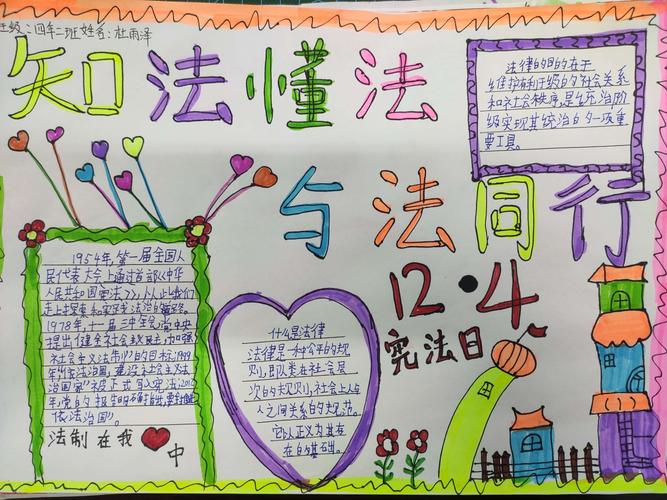 班级：四年二班 姓名：杜雨泽
知法懂法
与法同行
12·4
宪法日
法律的目的在于
维护有利于统治阶级的社会关系
和社会秩序，是统治阶
级实现其统治的一项重
要工具。
1954年，第一届全国人
民代表大会上通过首部《中华
人民共和国宪法》，从此我们
走上探索和实践法治的道路。
1978年，十一届三中全会，党中央
提出健全社会主义民主，加强
社会主义法制的目标。1999
年，
，建设社会主义法
治国家"被正式写入宪法，
年，党的
依法治国"。
法制在我❤中
什么是法律
法律是一种公平的规
则，
次的规则，社会上人与
人之间关系的规范。
它以正义为其存
在的基础。